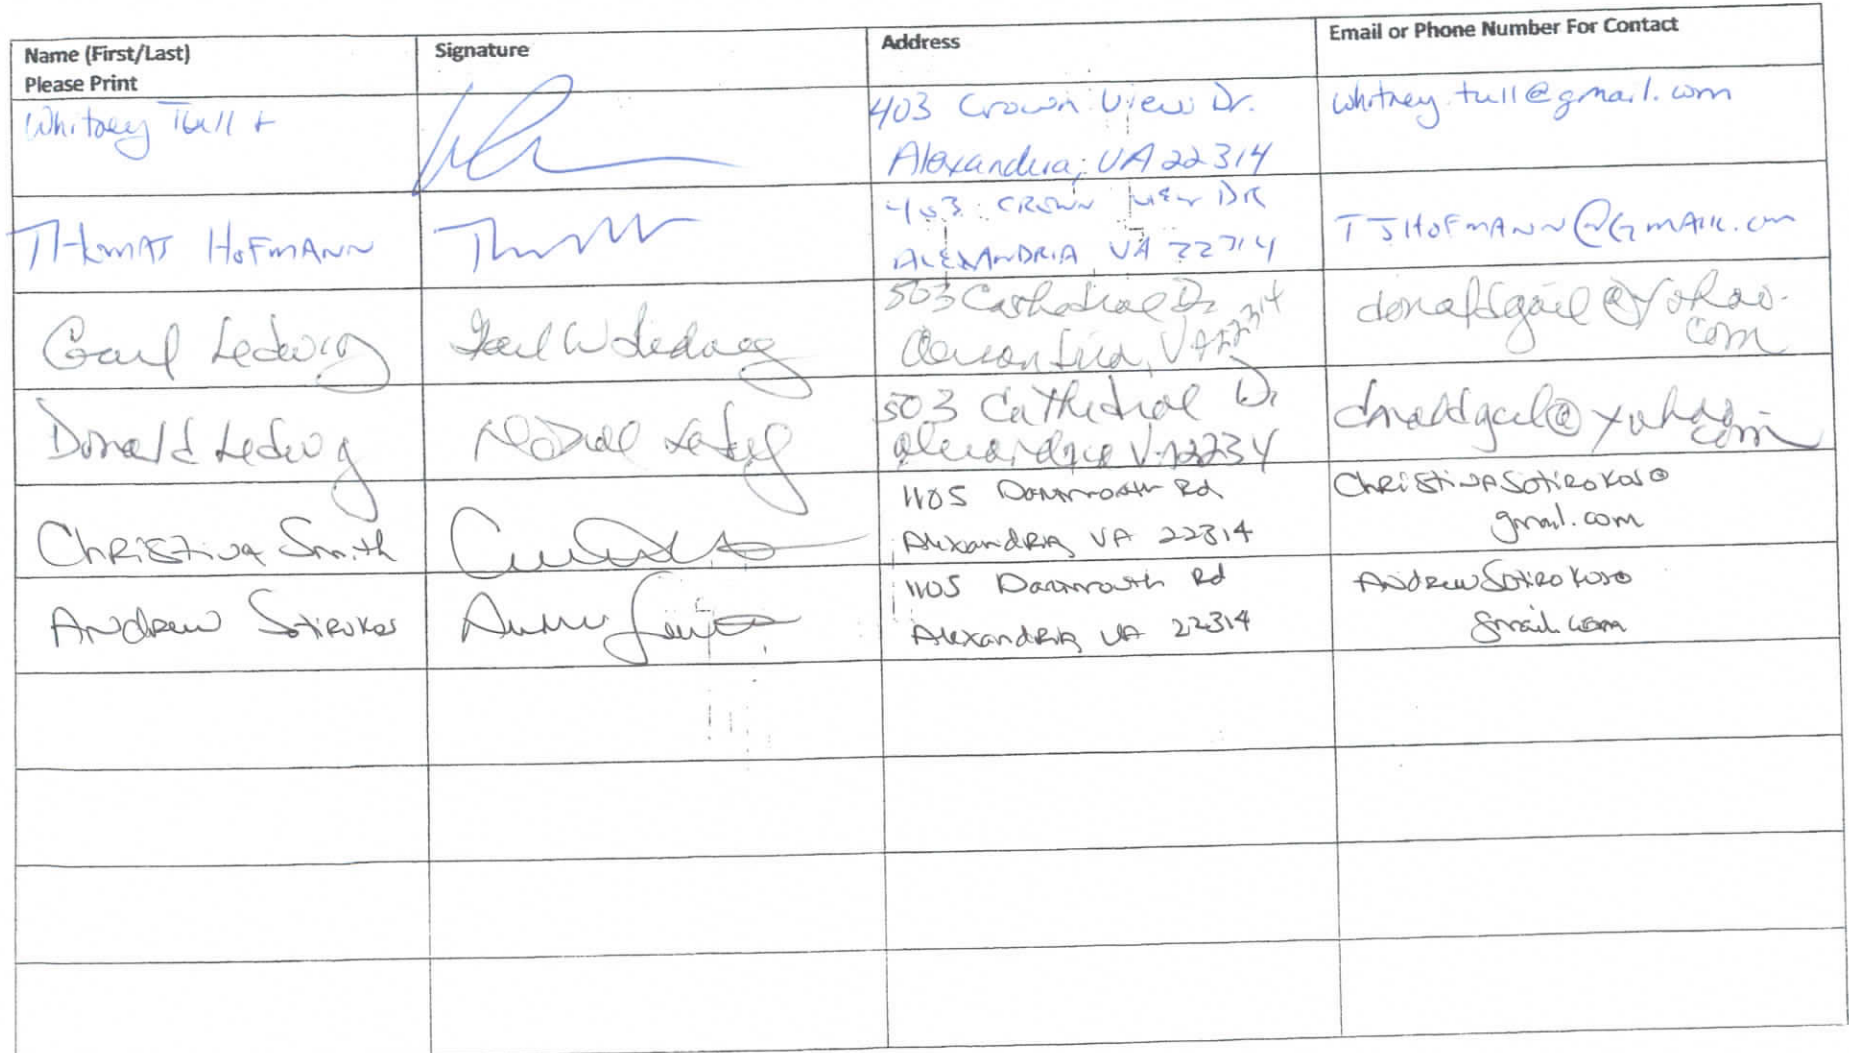 Name (First/Last)
Please Print
Signature
Address
Email or Phone Number For Contact
Whitney Tull +
403 Crown View Dr.
Alexandria, VA 22314
whitney.tull@gmail.com
THOMAS HOFMANN
403 CROWN VIEW DR
ALEXANDRIA VA 22314
TJHOFMANN@GMAIL.com
Gail Ledwig
Gail W Ledwig
503 Cathedral Dr
Alexandria, VA 22314
donaldgail@yahoo.
com
Donald Ledwig
Donald Ledwig
503 Cathedral Dr
Alexandria VA 2234
donaldgail@yahoo.
com
Christina Smith
1105 Dartmouth Rd
Alexandria VA 22314
ChristinaSotirokos@
gmail.com
Andrew Sotirokos
1105 Dartmouth Rd
Alexandria VA 22314
AndrewSotirokos@
gmail.com